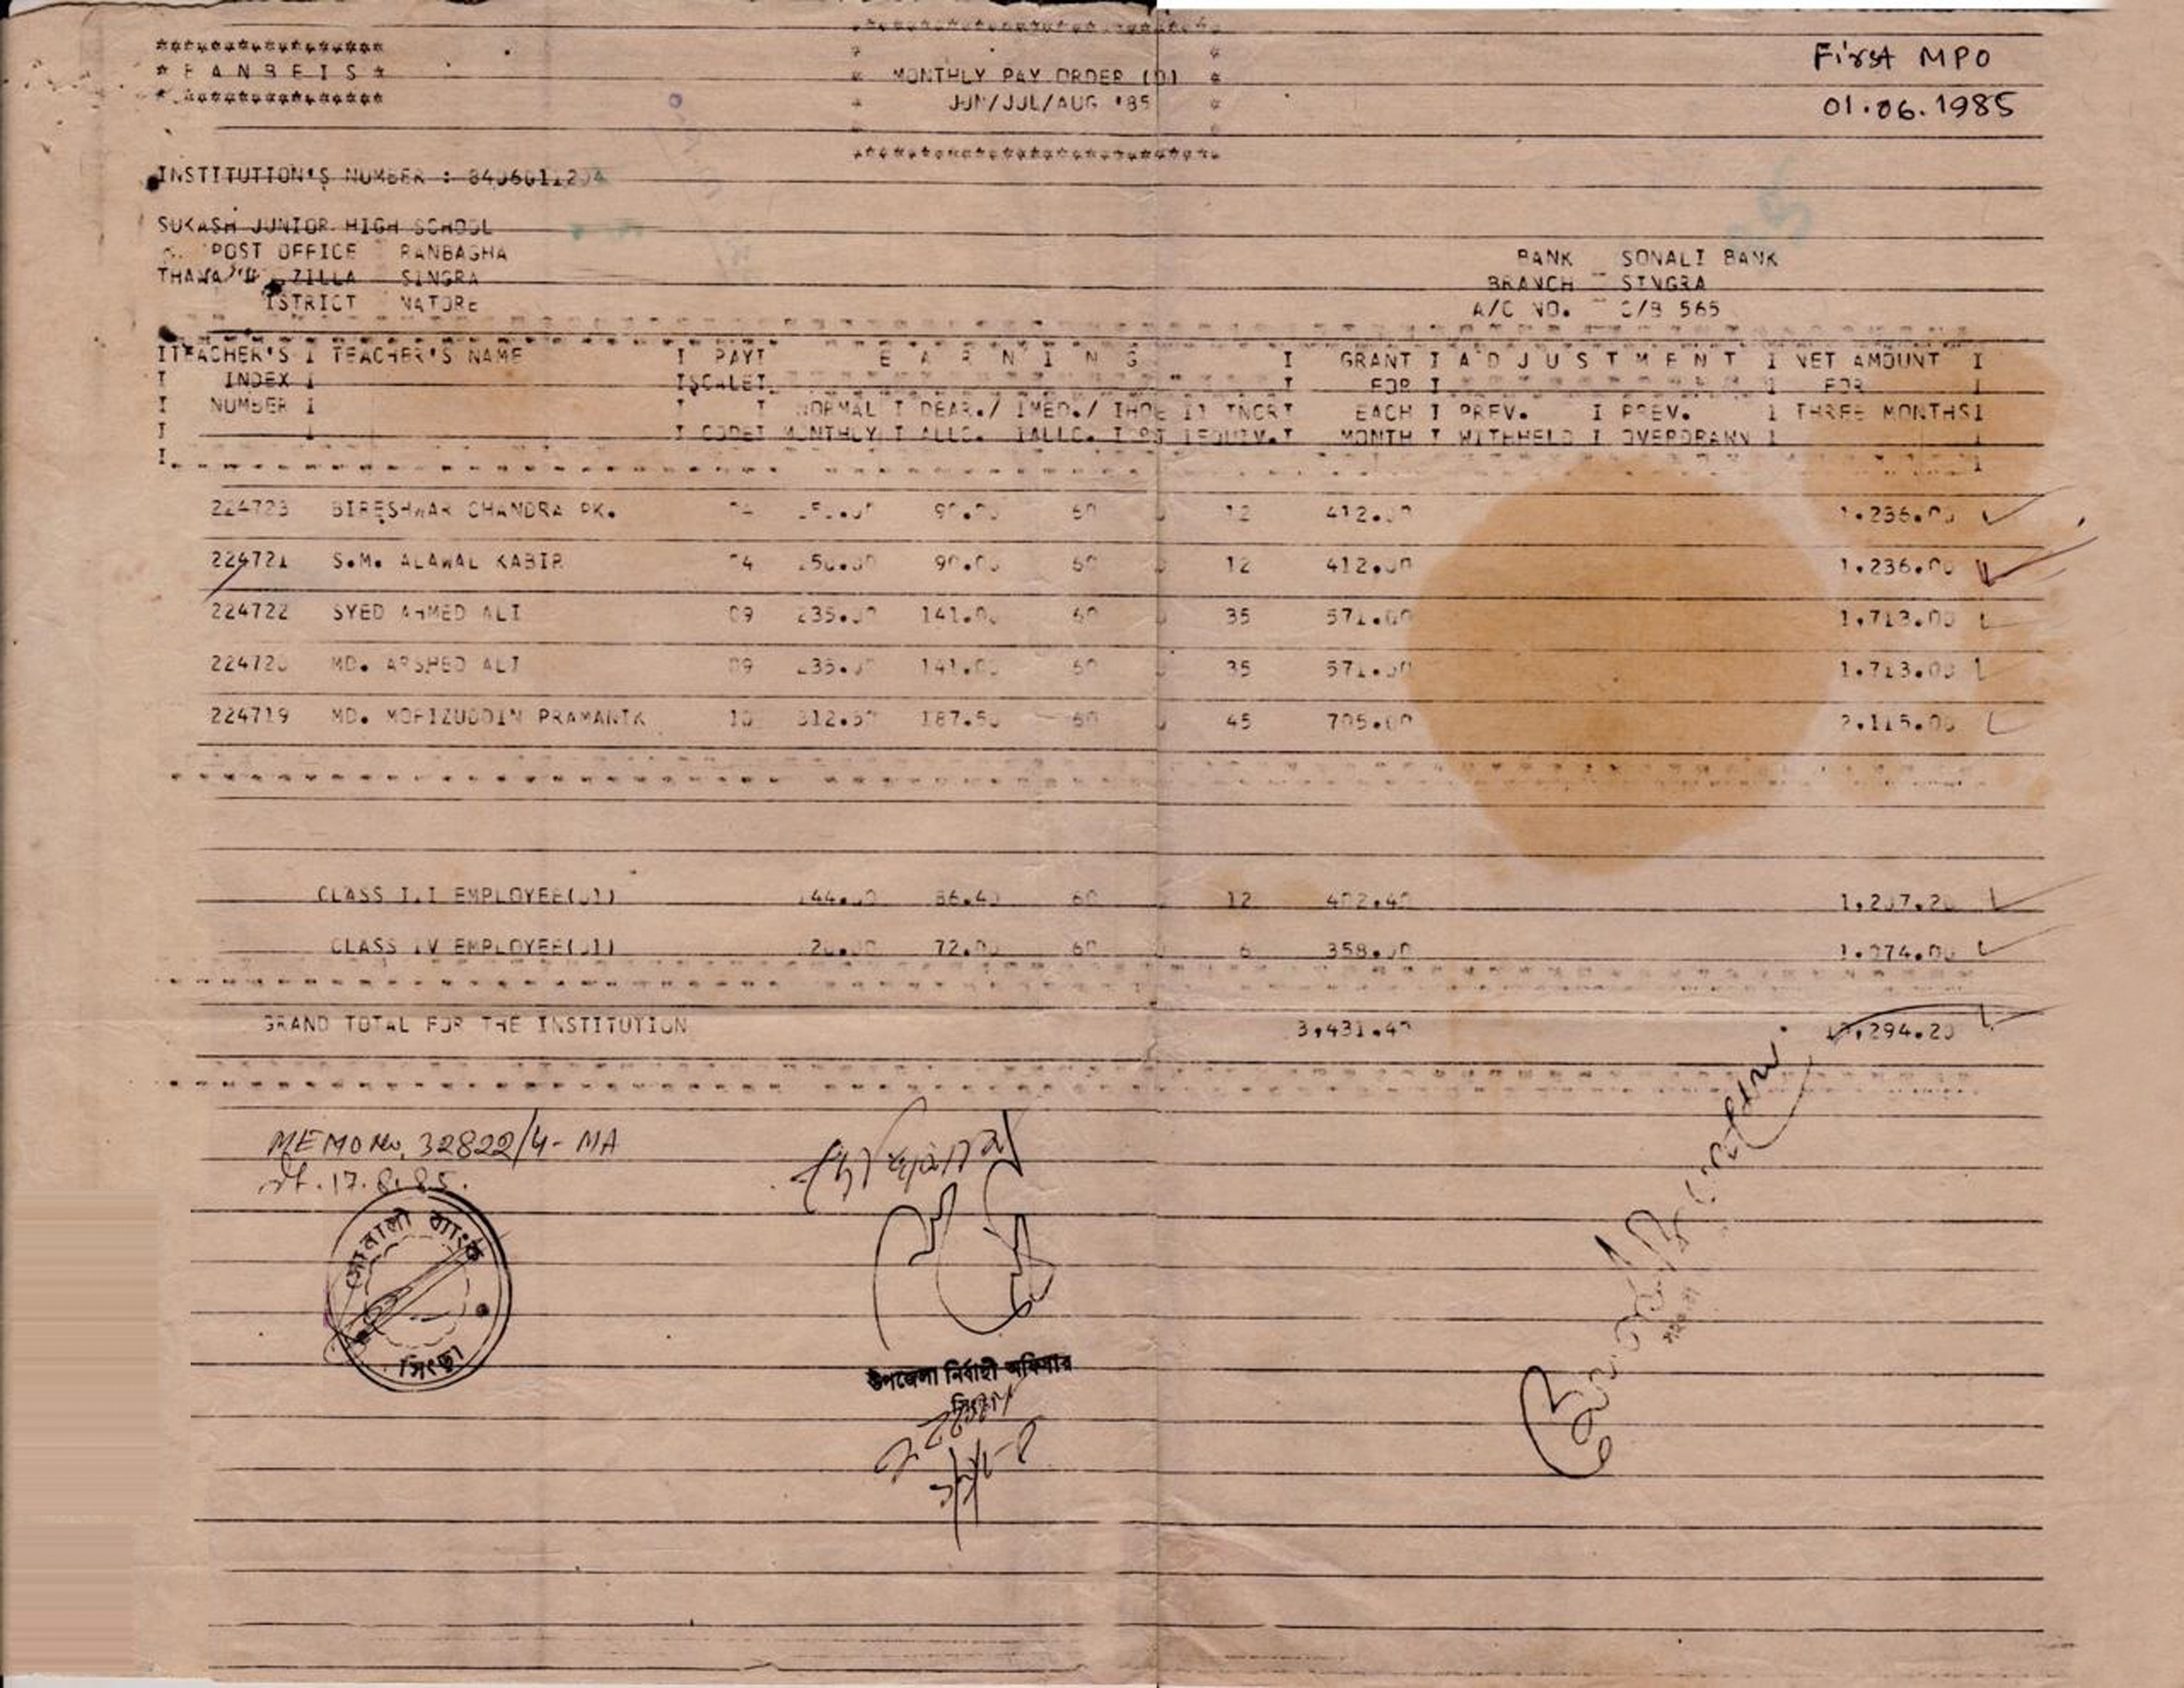 * B A N B E I S *
MONTHLY PAY ORDER (D)
JUN/JUL/AUG '85
First MPO
01.06.1985
INSTITUTION'S NUMBER :
SUKASH JUNIOR HIGH SCHOOL
POST OFFICE RANBAGHA
ZILLA SINGRA
ISTRICT NATORE
BANK SONALI BANK
BRANCH SINGRA
A/C NO. 565
TEACHER'S I TEACHER'S NAME I PAY I E A R N I N G I GRANT I A D J U S T M E N T I NET AMOUNT I
INDEX I SCALE FOR I FOR I
NUMBER I NORMAL I DEAR./ IMED./ INCR I EACH I PREV. I PREV. I THREE MONTHS I
CODE MONTHLY I ALLC. IALLC. EQUIV. I MONTH I WITHHELD I OVERDRAWN I
224723 BIRESHWAR CHANDRA PK. 60 12 412.00 1,236.00
224721 S.M. ALAWAL KABIR 90.00 60 12 412.00 1,236.00
224722 SYED AHMED ALI 09 235.00 141.00 60 35 571.00 1,713.00
224720 MD. ARSHED ALI 09 235.00 141.00 60 35 571.00 1,713.00
224719 MD. MOFIZUDDIN PRAMANIK 10 312.50 187.50 60 45 705.00 2,115.00
CLASS EMPLOYEE(01) 86.40 60 12 402.40 1,207.20
CLASS IV EMPLOYEE(01) 72.00 60 6 358.00 1,074.00
GRAND TOTAL FOR THE INSTITUTION 3,431.40 10,294.20
MEMO No. 32822/4- MA
dt. 17.8.85.
সোনালী ব্যাংক
সিংড়া
উপজেলা নির্বাহী অফিসার